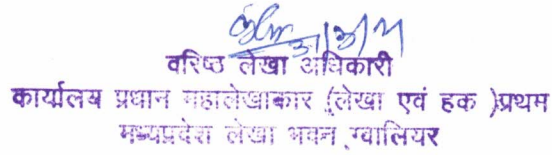 वरिष्ठ लेखा अधिकारी
कार्यालय प्रधान महालेखाकार (लेखा एवं हक )प्रथम
मध्यप्रदेश लेखा भवन ,ग्वालियर